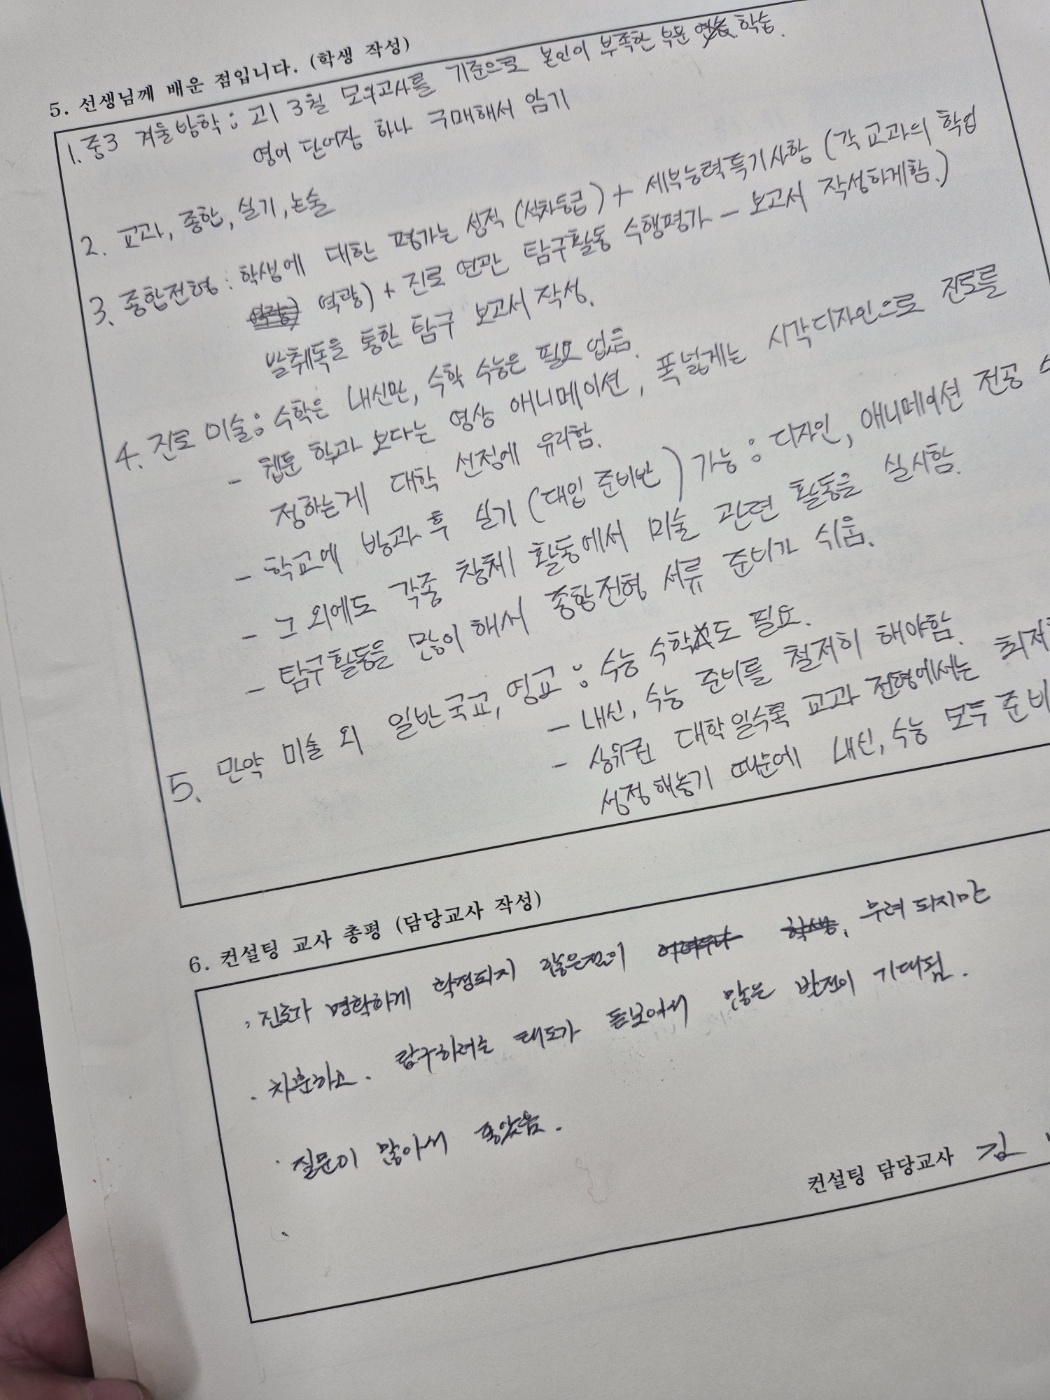 5. 선생님께 배운 점입니다. (학생 작성)
1. 중3 겨울방학 : 고1 3월 모의고사를 기준으로 본인이 부족한 부분 학습.
영어 단어장 하나 구매해서 암기
2. 교과, 종합, 실기, 논술
3. 종합전형 : 학생에 대한 평가는 성적 (석차등급) + 세부능력특기사항 (각 교과의 학업
역량) + 진로 연관 탐구활동 수행평가 - 보고서 작성하게함.)
발췌독을 통한 탐구 보고서 작성.
4. 진로 미술 : 수학은 내신만, 수학 수능은 필요 없음.
- 웹툰 학과 보다는 영상 애니메이션, 폭넓게는 시각디자인으로 진로를
정하는게 대학 선정에 유리함.
- 학교에 방과 후 실기 (대입 준비반) 가능 : 디자인, 애니메이션 전공
- 그 외에도 각종 창체 활동에서 미술 관련 활동을 실시함.
- 탐구활동을 많이 해서 종합전형 서류 준비가 쉬움.
5. 만약 미술 외 일반 국교, 영교 : 수능 수학도 필요.
- 내신, 수능 준비를 철저히 해야함.
- 상위권 대학일수록 교과 전형에서는 최저
설정해놓기 때문에 내신, 수능 모두 준비
6. 컨설팅 교사 총평 (담당교사 작성)
진로가 명확하게 확정되지 않은점이 우려 되지만
차분하고. 탐구하려는 태도가 돋보여서 많은 발전이 기대됨.
질문이 많아서 좋았음.
컨설팅 담당교사 김